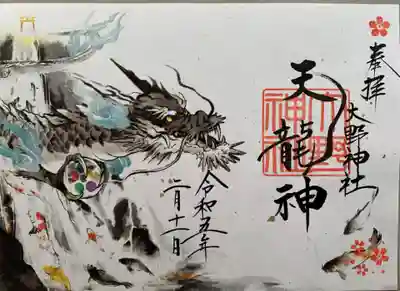 奉拝
大野神社
天龍神
令和五年
二月十一日